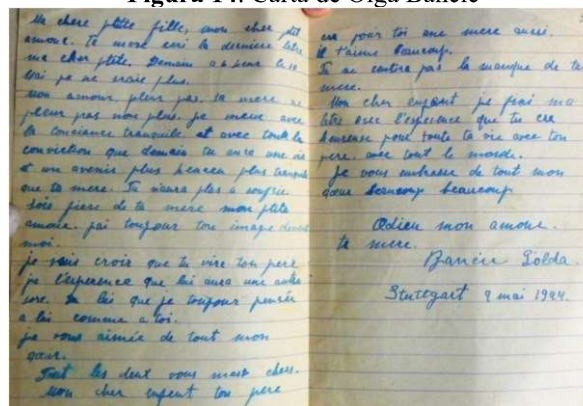 Figura 14: Carta de Olga Bancic
Ma chere ptite fille, mon cher ptit
amour. Ta mere ecri la derniere letre
ma cher ptite. Demain a 6 heur le 10
Mai je ne sraie plus.
Mon amour, pleur pas, ta mere ne
pleur pas non plus. je meur avec
la conciance tranquile et avec toute la
conviction que demain tu aura une vie
et un avenir plus heureu plus tranquile
que ta mere. Tu n'aura plus a soufrir.
Sois fiere de ta mere mon ptite
amour. j'ai toujour ton image devant
moi.
je vais croir que tu vera ton pere
je l'experence que lui aura une autre
sore. Di lui que je toujour pensée
a lui comme a toi.
je vous aimée de tout mon
cœur.
Tout les deux vous mest chers.
Mon cher enfent ton pere
era pour toi une mere aussi.
il t'aime beaucoup.
Tu ne sentira pas la manque de ta
mere.
Mon cher enfant je finis ma
letre avec l'esperance que tu era
heureuse pour toute ta vie avec ton
pere, avec tout le monde.
je vous embrasse de tout mon
cœur beaucoup beaucoup
Adieu mon amour.
ta mere.
Bancic Golda.
Stuttgart 9 mai 1944.